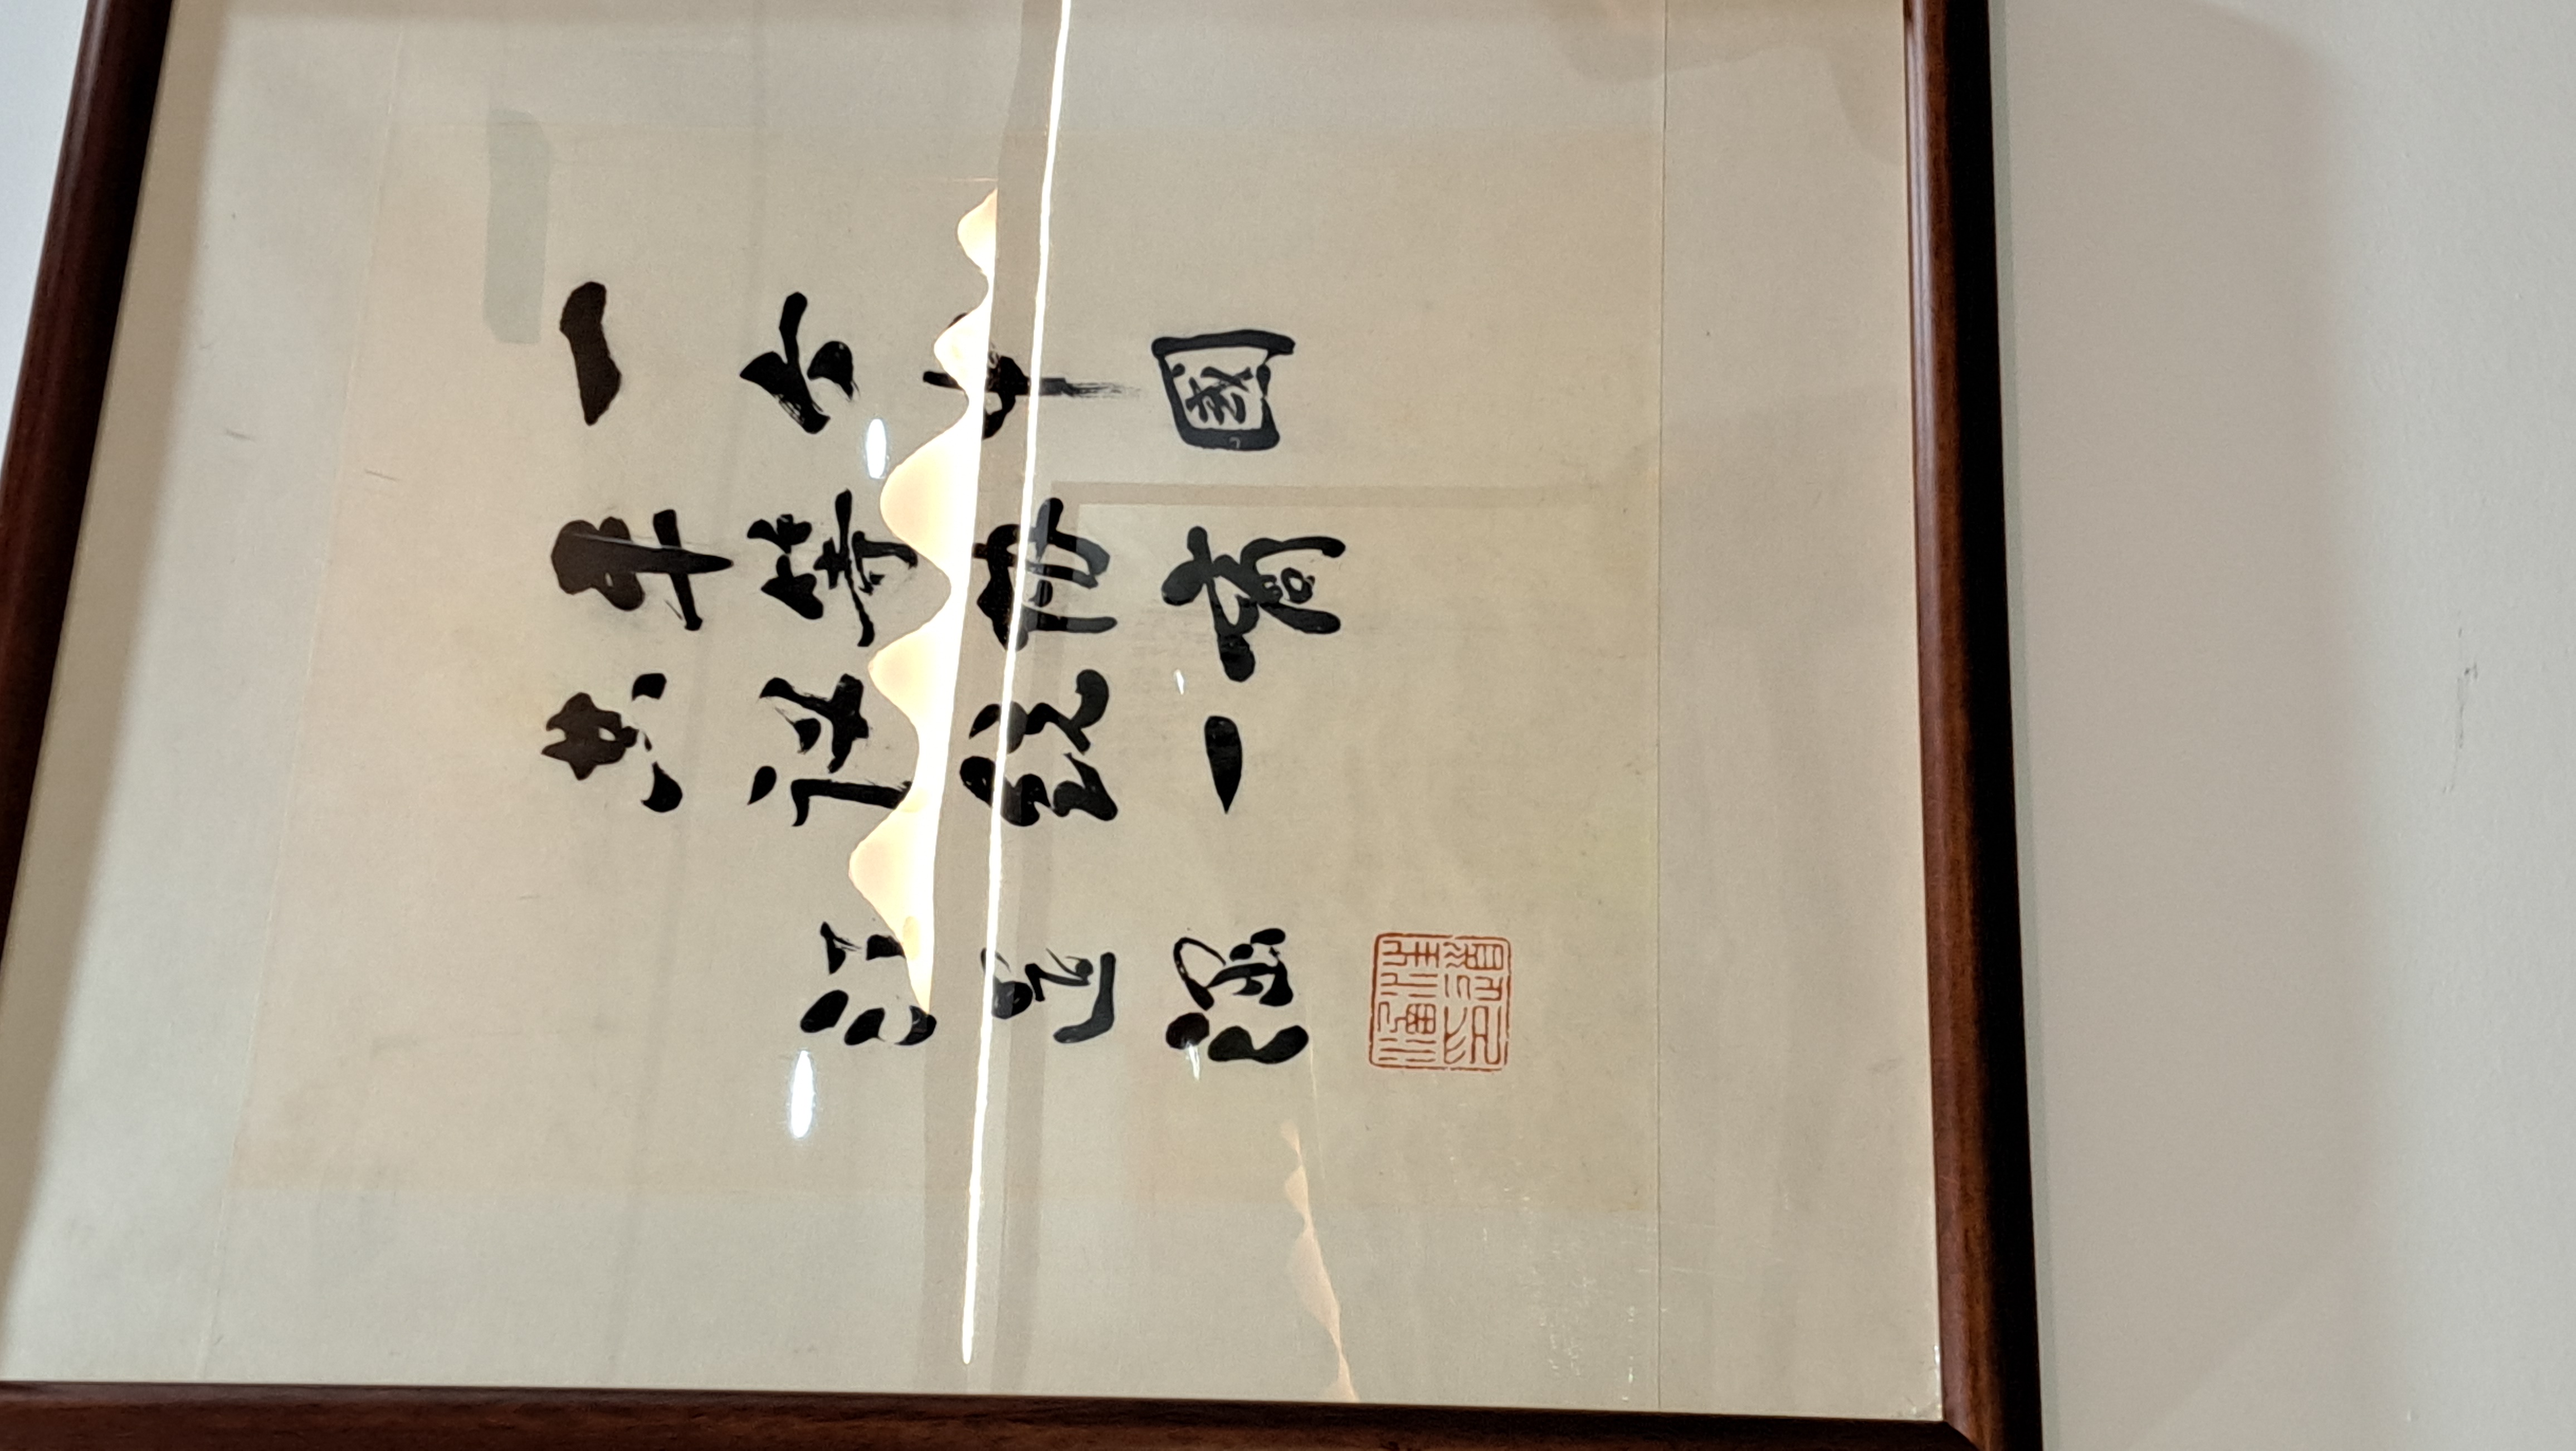 一个中國
平等协商
共议统一
汪道涵
汪道涵印